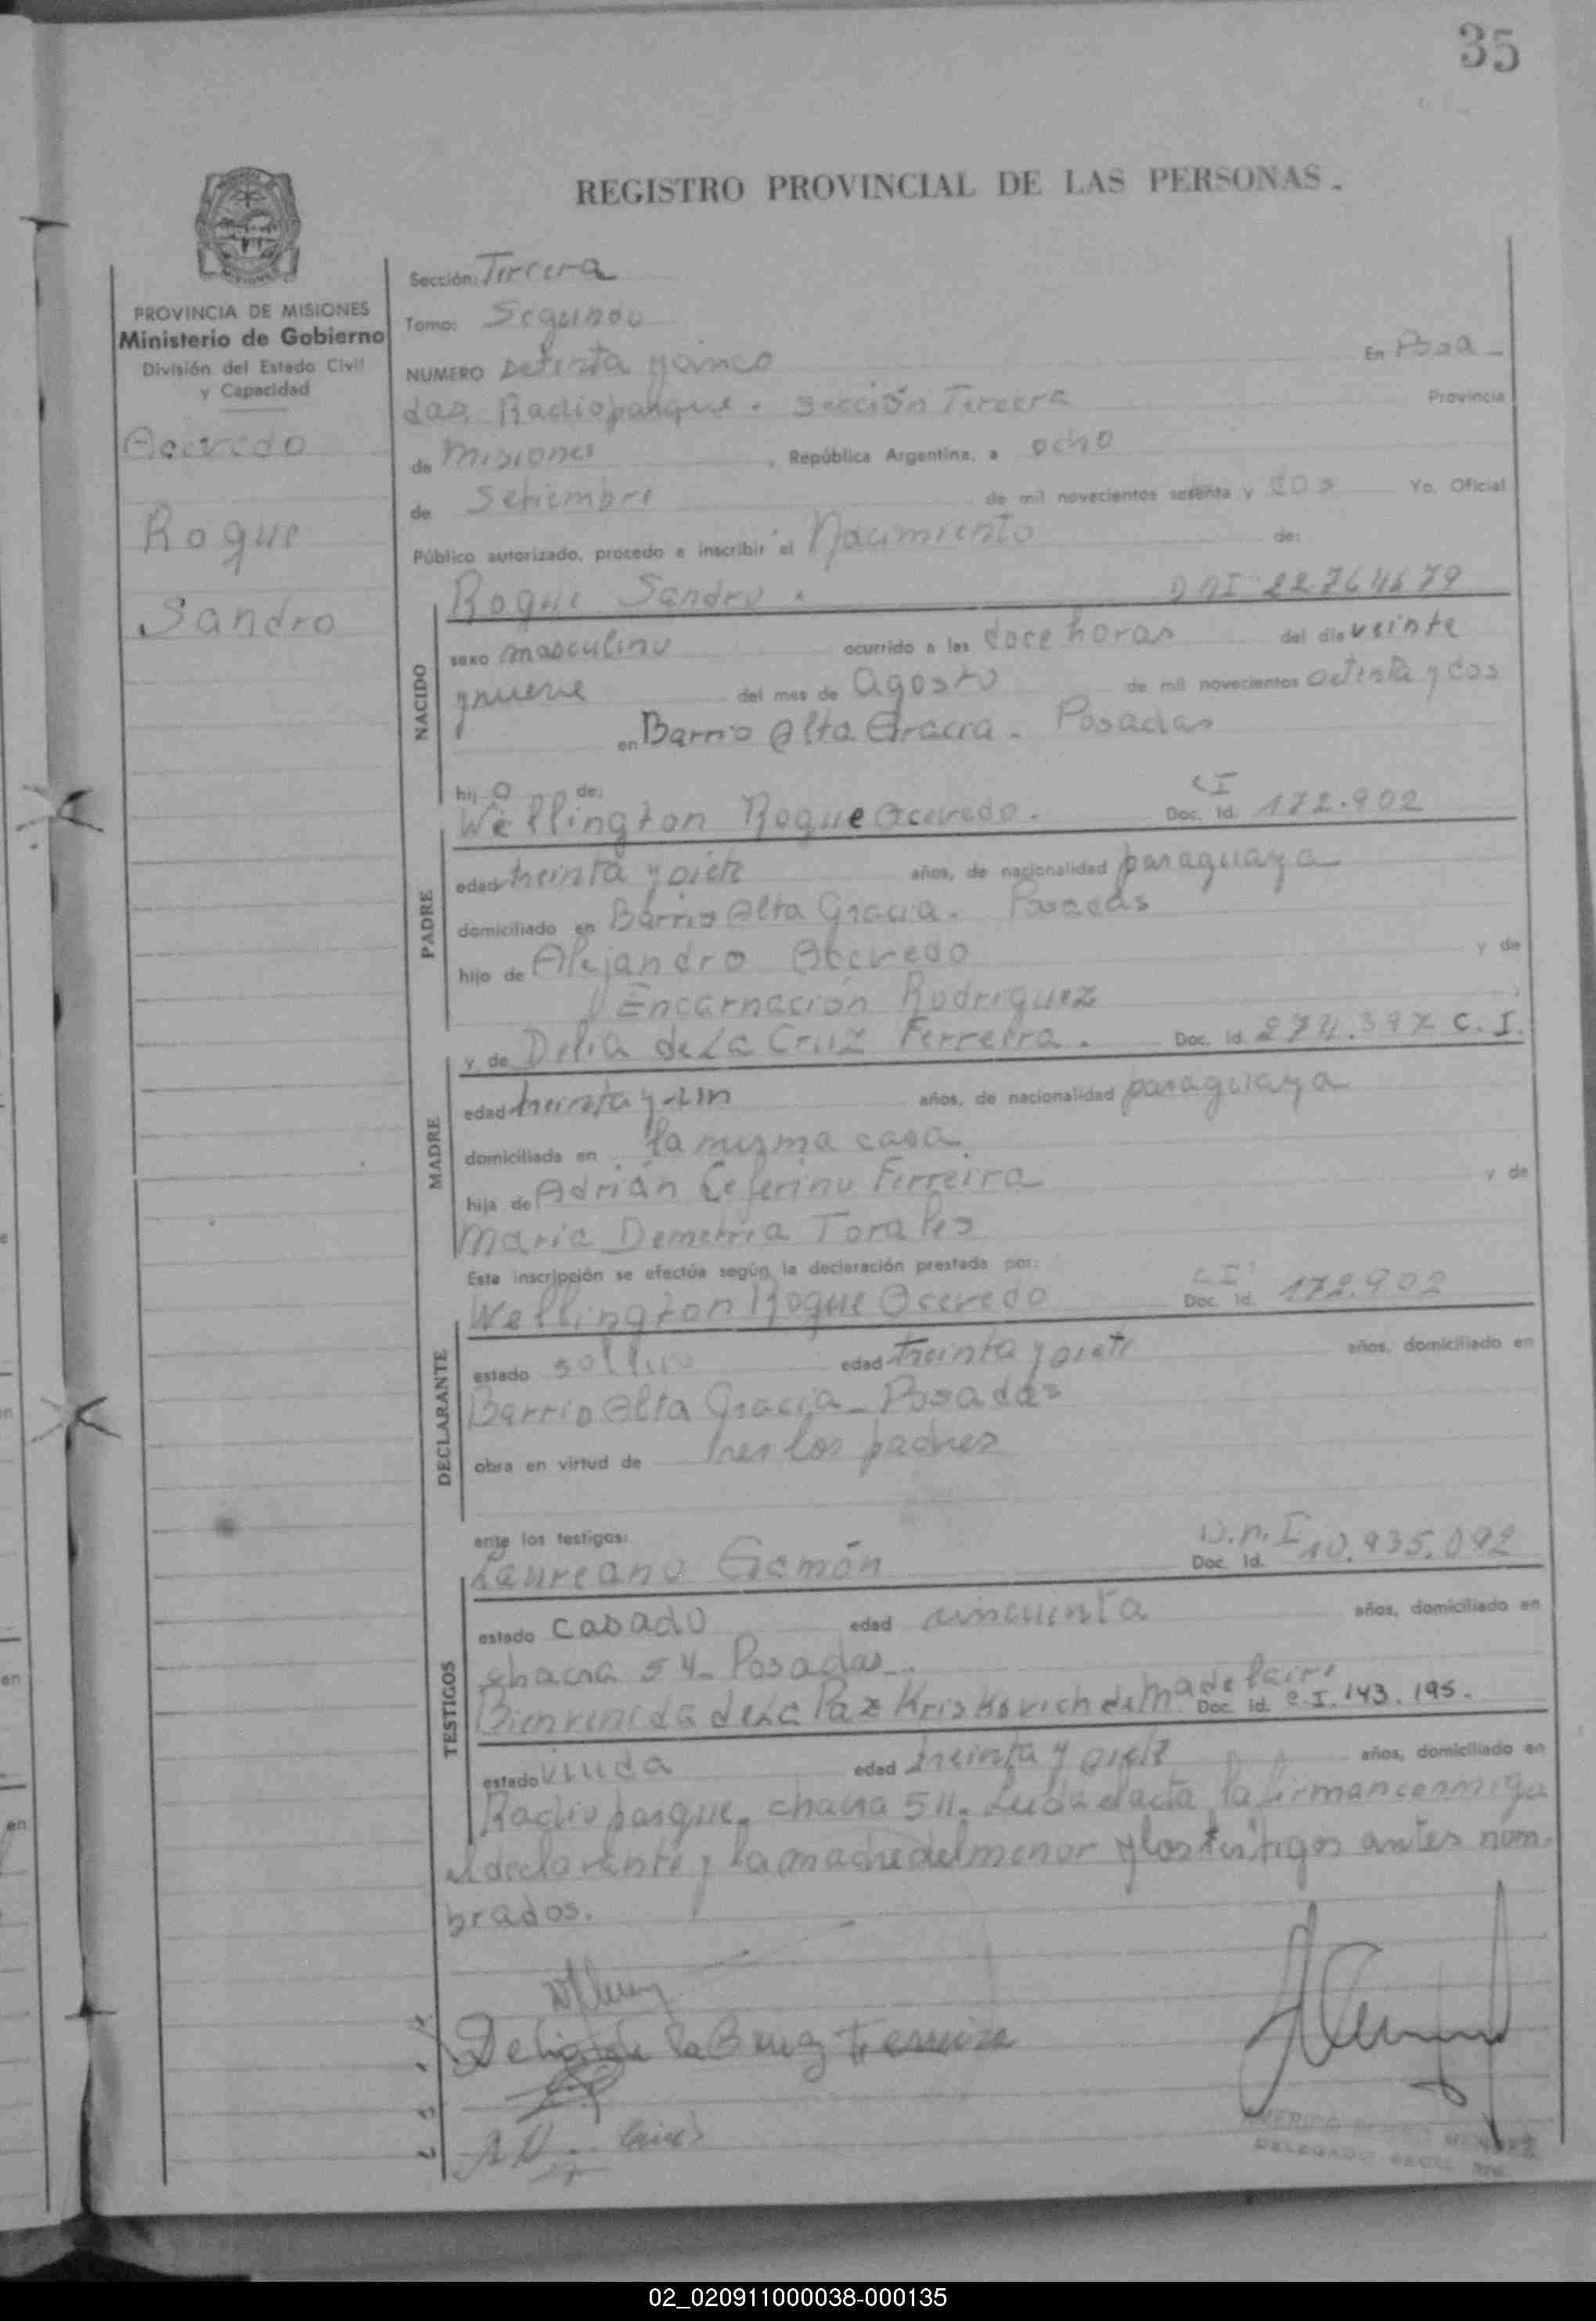 35
REGISTRO PROVINCIAL DE LAS PERSONAS.
PROVINCIA DE MISIONES
Ministerio de Gobierno
División del Estado Civil
y Capacidad
Acevedo
Roque
Sandro
Sección: Tercera
Tomo: Segundo
NUMERO setenta y cinco En Posa-
das, Radioparque. Sección Tercera Provincia
de Misiones, República Argentina, a ocho
de Setiembre de mil novecientos setenta y dos Yo, Oficial
Público autorizado, procedo a inscribir el Nacimiento de:
Roque Sandro. DNI 22.764.679
NACIDO
sexo masculino ocurrido a las doce horas del día veinte
y nueve del mes de agosto de mil novecientos setenta y dos
en Barrio Alta Gracia. Posadas
hij o de:
Wellington Roque Acevedo. CI Doc. Id. 172.902
PADRE
edad treinta y siete años, de nacionalidad paraguaya
domiciliado en Barrio Alta Gracia. Posadas
hijo de Alejandro Acevedo y de
Encarnación Rodriguez
y de Delia de La Cruz Ferreira. Doc. Id. 274.397 C.I.
MADRE
edad treinta y un años, de nacionalidad paraguaya
domiciliada en la misma casa
hija de Adrián Ceferino Ferreira y de
Maria Demetria Torales
Esta inscripción se efectúa según la declaración prestada por:
Wellington Roque Acevedo C.I. Doc. Id. 172.902
DECLARANTE
estado soltero edad treinta y siete años, domiciliado en
Barrio Alta Gracia - Posadas
obra en virtud de ser los padres
ante los testigos:
Laureano Gamón D.N.I. Doc. Id. 10.935.092
TESTIGOS
estado casado edad cincuenta años, domiciliado en
chacra 54 - Posadas
Bienvenida de La Paz Kriskovich de Doc. Id. C.I. 143.195.
estado viuda edad treinta y siete años, domiciliado en
Radioparque, chacra 511. Leida el acta, la firman conmigo
el declarante y la madre del menor y los testigos antes nom-
brados.
Delia de la Cruz Ferreira
02_020911000038-000135